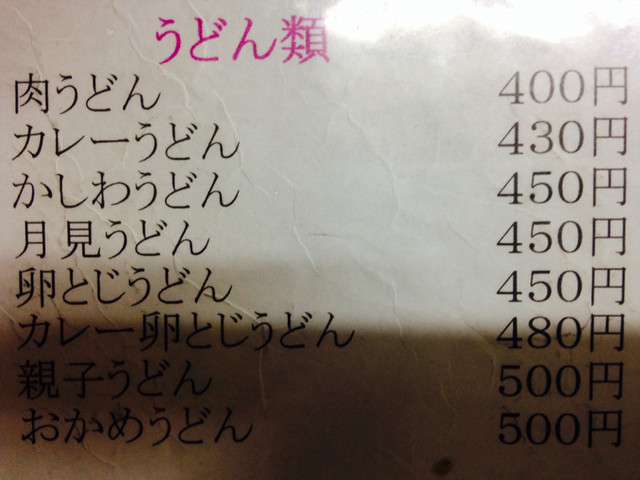 うどん類
肉うどん 400円
カレーうどん 430円
かしわうどん 450円
月見うどん 450円
卵とじうどん 450円
カレー卵とじうどん 480円
親子うどん 500円
おかめうどん 500円